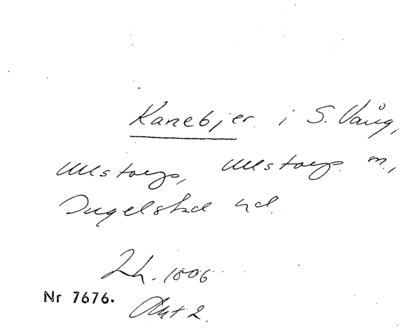 Kanebjer i S. Vång,
Ullstorp, Ullstorps m.,
Ingelstad hd.
Lh. 1806
Nr 7676.
Akt 2.